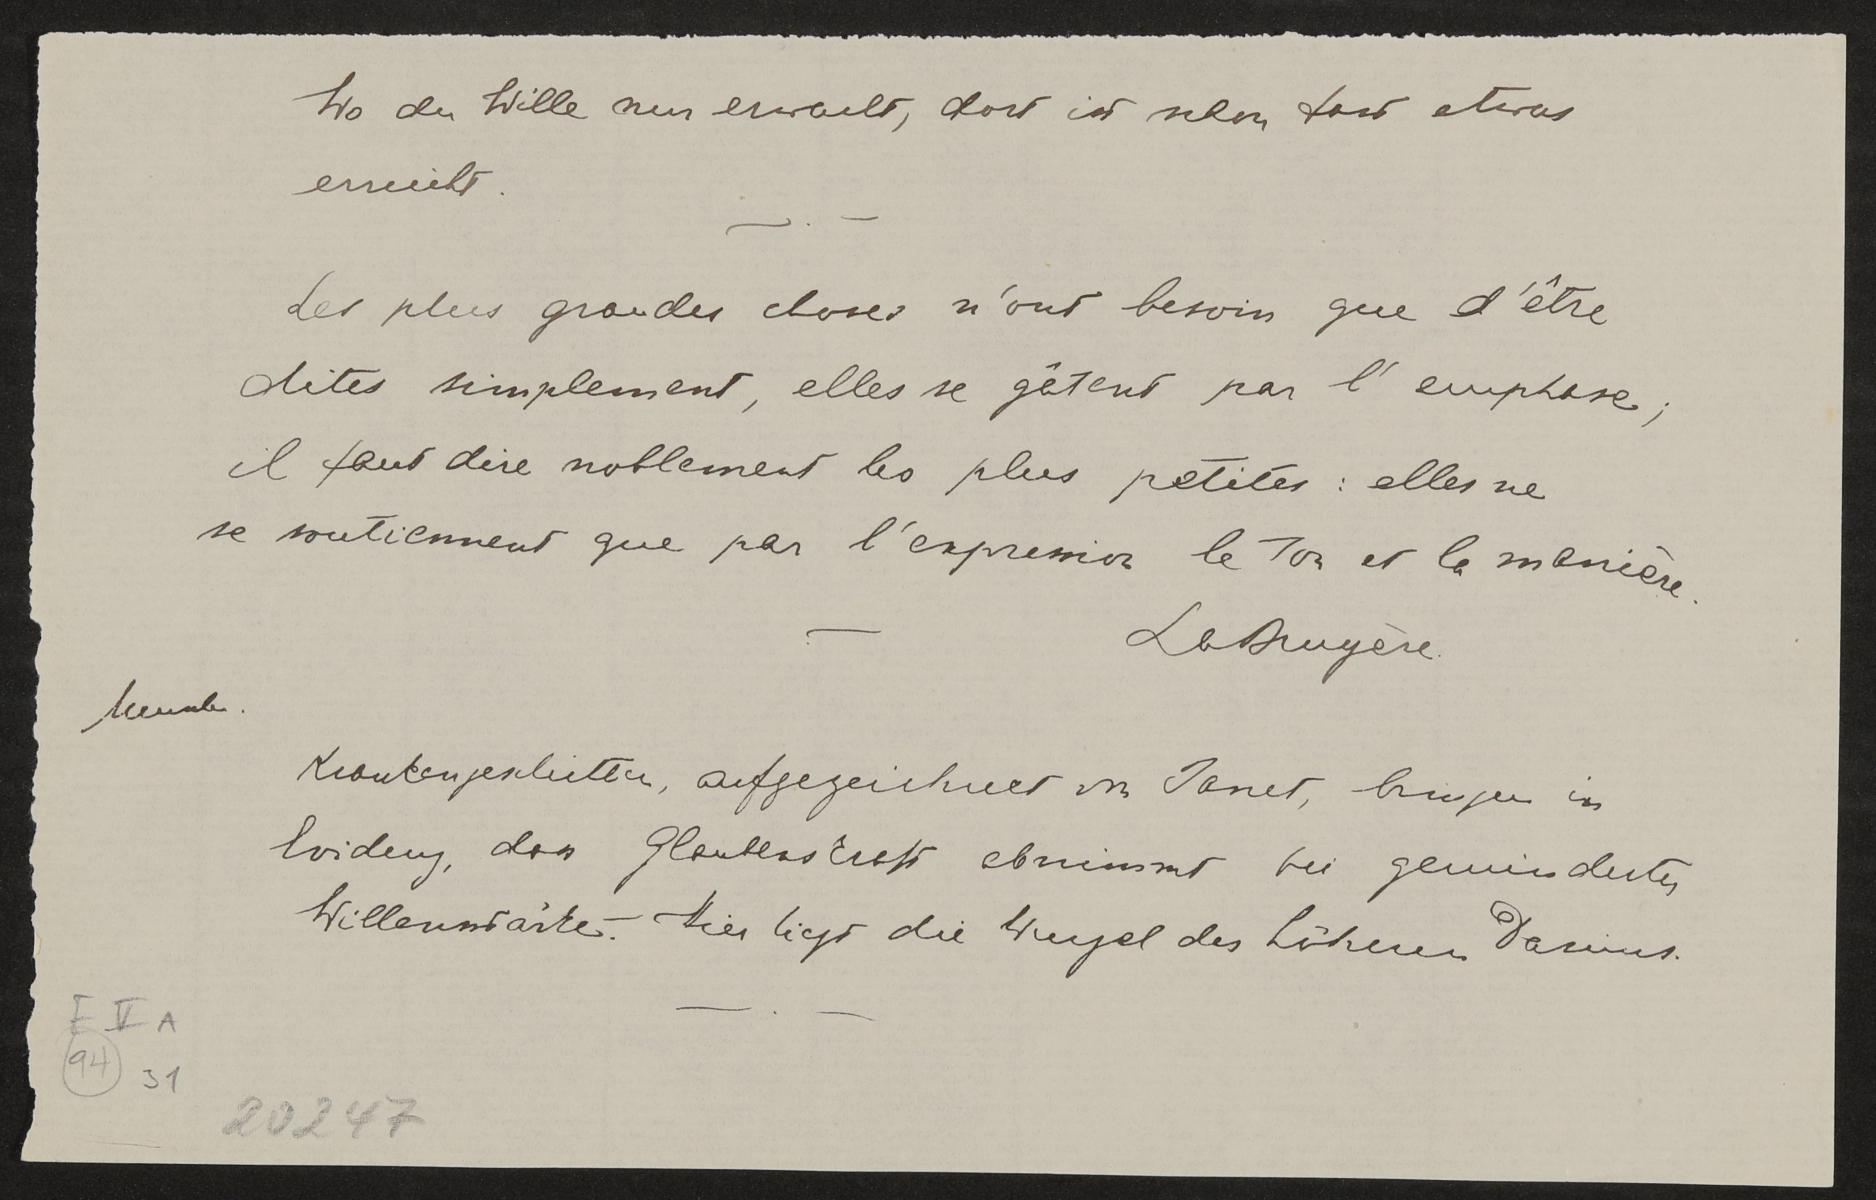 Wo der Wille nur erwacht, dort ist schon fast etwas
erreicht.
Les plus grandes choses n'ont besoin que d'être
dites simplement, elles se gâtent par l'emphase;
il faut dire noblement les plus petites: elles ne
se soutiennent que par l'expression le ton et la manière.
La Bruyère.
Krankengeschichten, aufgezeichnet von Janet, bringen in
Evidenz, dass Glaubenskraft abnimmt bei geminderter
Willensstärke. – Hier liegt die Wurzel des höheren
E V A
94 31
20247